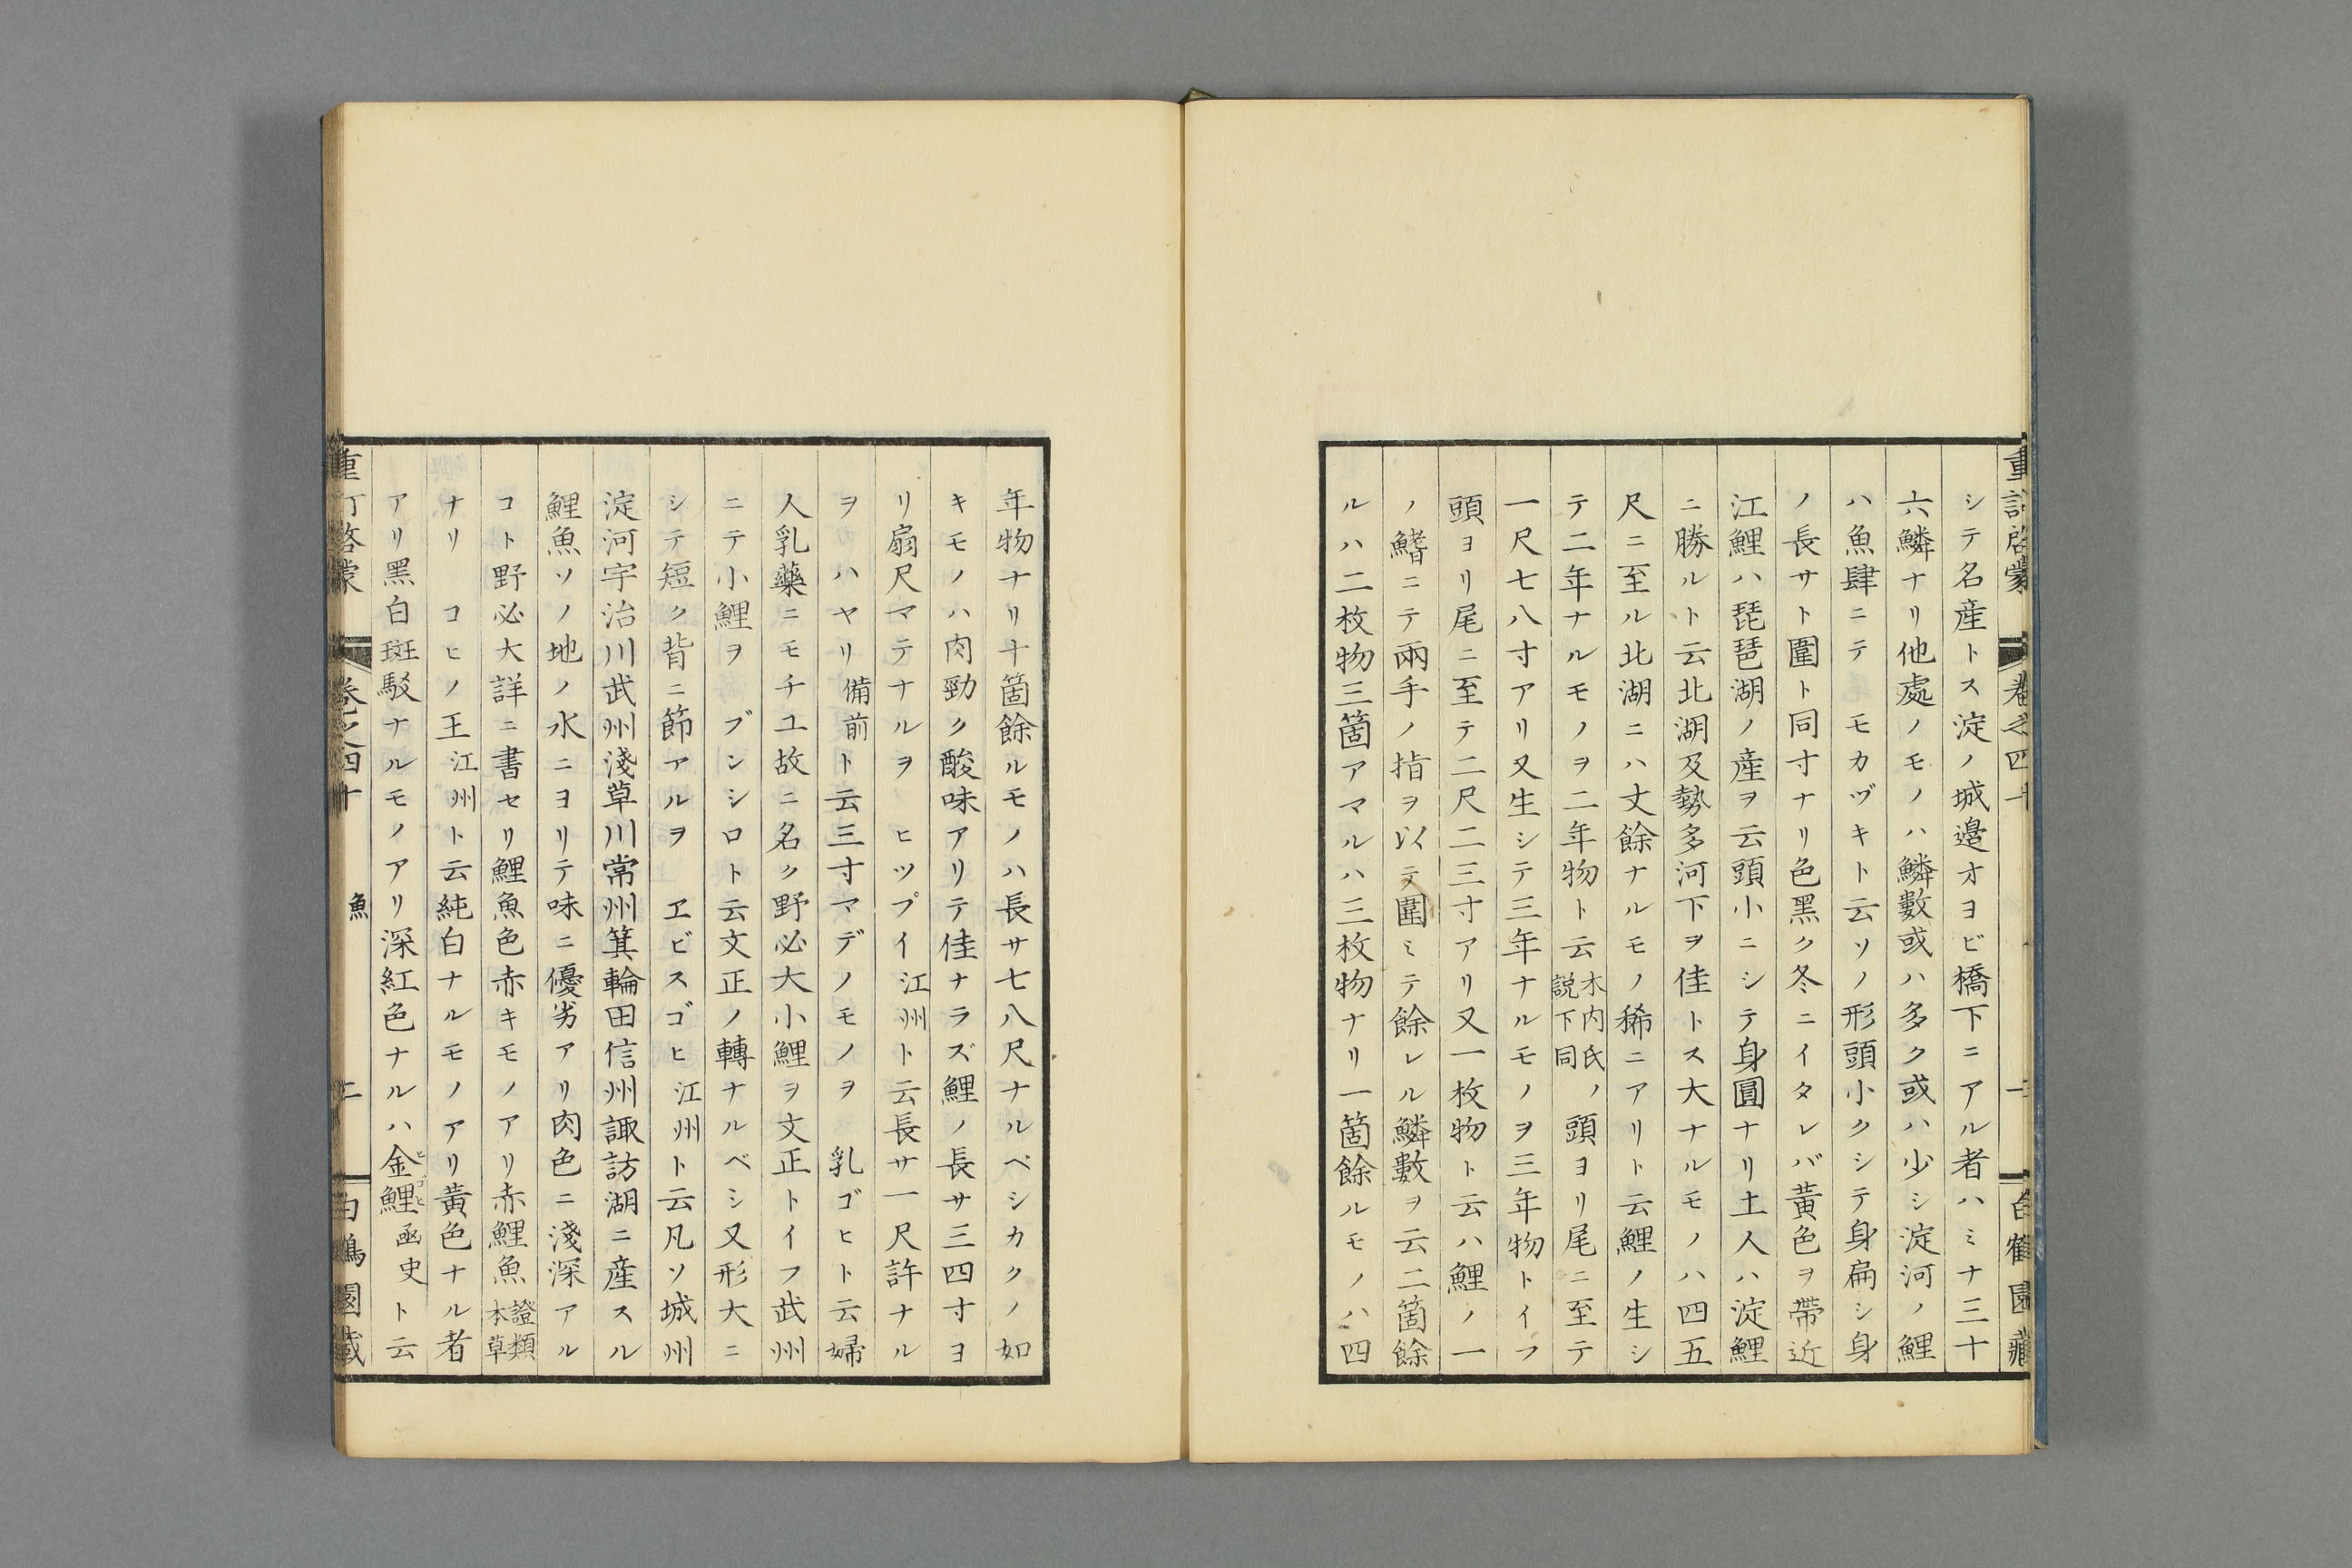 シテ名産トス淀ノ城邉オヨビ橋下ニアル者ハミナ三十
六鱗ナリ他處ノモノハ鱗數或ハ多ク或ハ少シ淀河ノ鯉
ハ魚肆ニテ モカヅキト云ソノ形頭小クシテ身扁シ身
ノ長サト圍ト同寸ナリ色黒ク冬ニイタレバ黃色ヲ帶近
江鯉ハ琵琶湖ノ産ヲ云頭小ニシテ身圓ナリ土人ハ淀鯉
ニ勝ルト云北湖及勢多河下ヲ佳トス大ナルモノハ四五
尺ニ至ル北湖ニハ丈餘ナルモノ稀ニアリト云鯉ノ生シ
テ二年ナルモノヲ二年物ト云木内氏説下同ノ頭ヨリ尾ニ至テ
一尺七八寸アリ又生シテ三年ナルモノヲ三年物トイフ
頭ヨリ尾ニ至テ二尺二三寸アリ又一枚物ト云ハ鯉ノ一
ノ鰭ニテ兩手ノ指ヲ以テ圍ミテ餘レル鱗數ヲ云二箇餘
ルハ二枚物三箇アマルハ三枚物ナリ一箇餘ルモノハ四
年物ナリ十箇餘ルモノハ長サ七八尺ナルベシカクノ如
キモノハ肉勁ク酸味アリテ佳ナラズ鯉ノ長サ三四寸ヨ
リ扇尺マテナルヲ ヒツプイ江州ト云長サ一尺許ナル
ヲ ハヤリ備前ト云三寸マデノモノヲ 乳ゴヒト云婦
人乳藥ニモチユ故ニ名ク野必大小鯉ヲ文正トイフ武州
ニテ小鯉ヲ ブンシロト云文正ノ轉ナルベシ又形大ニ
シテ短ク背ニ節アルヲ ヱビスゴヒ江州ト云凡ソ城州
淀河宇治川武州淺草川常州箕輪田信州諏訪湖ニ産スル
鯉魚ソノ地ノ水ニヨリテ味ニ優劣アリ肉色ニ淺深アル
コト野必大詳ニ書セリ鯉魚色赤キモノアリ赤鯉魚證類本草
ナリ コヒノ王江州ト云純白ナルモノアリ黃色ナル者
アリ黑白斑駁ナルモノアリ深紅色ナルハ金鯉ヒゴヒ函史ト云
重訂啓蒙 卷之四十 魚 二 白鶴園藏